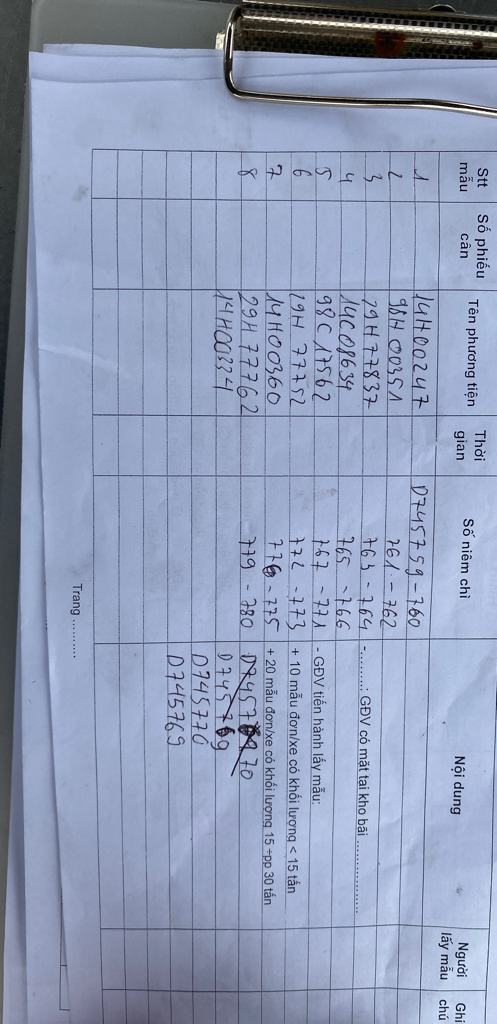 Stt mẫu
Số phiếu cân
Tên phương tiện
Thời gian
Số niêm chì
Nội dung
Người lấy mẫu
Ghi chú
1 14H00247 D745759-760
2 98H00351 761-762
3 29H77837 763-764 -........: GĐV có mặt tại kho bãi ....................
4 14C08634 765-766
5 98C17562 767-771 - GĐV tiến hành lấy mẫu:
6 29H 77752 772-773 + 10 mẫu đơn/xe có khối lượng < 15 tấn
7 14H00360 775 + 20 mẫu đơn/xe có khối lượng 15 ÷pp 30 tấn
8 29H77762 779-780
14H00334
D745770
D745769
Trang ..........